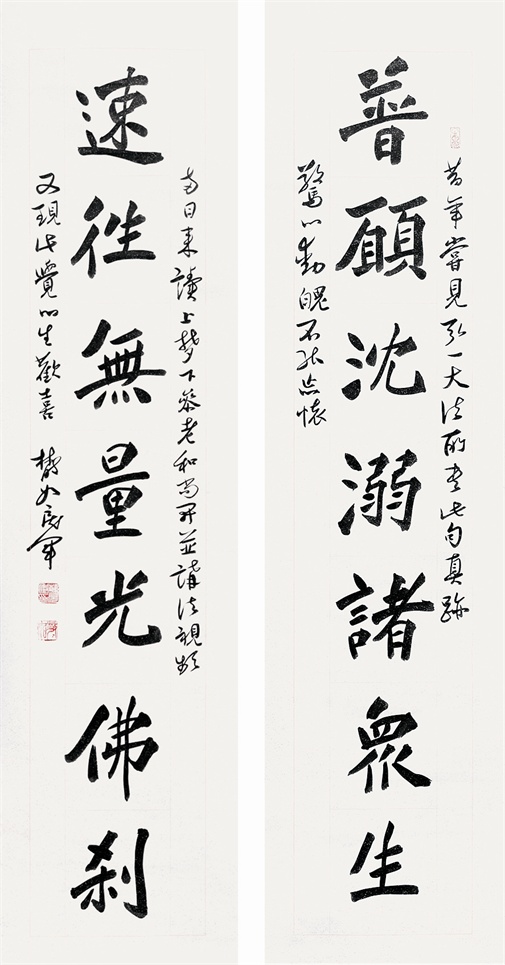 昔年嘗見弘一大法師書此句真跡
普願沈溺諸衆生
驚心動魄不能忘懷
日來讀上夢下參老和尚開並講法視頻
速往無量光佛刹
又現此覺心生歡喜